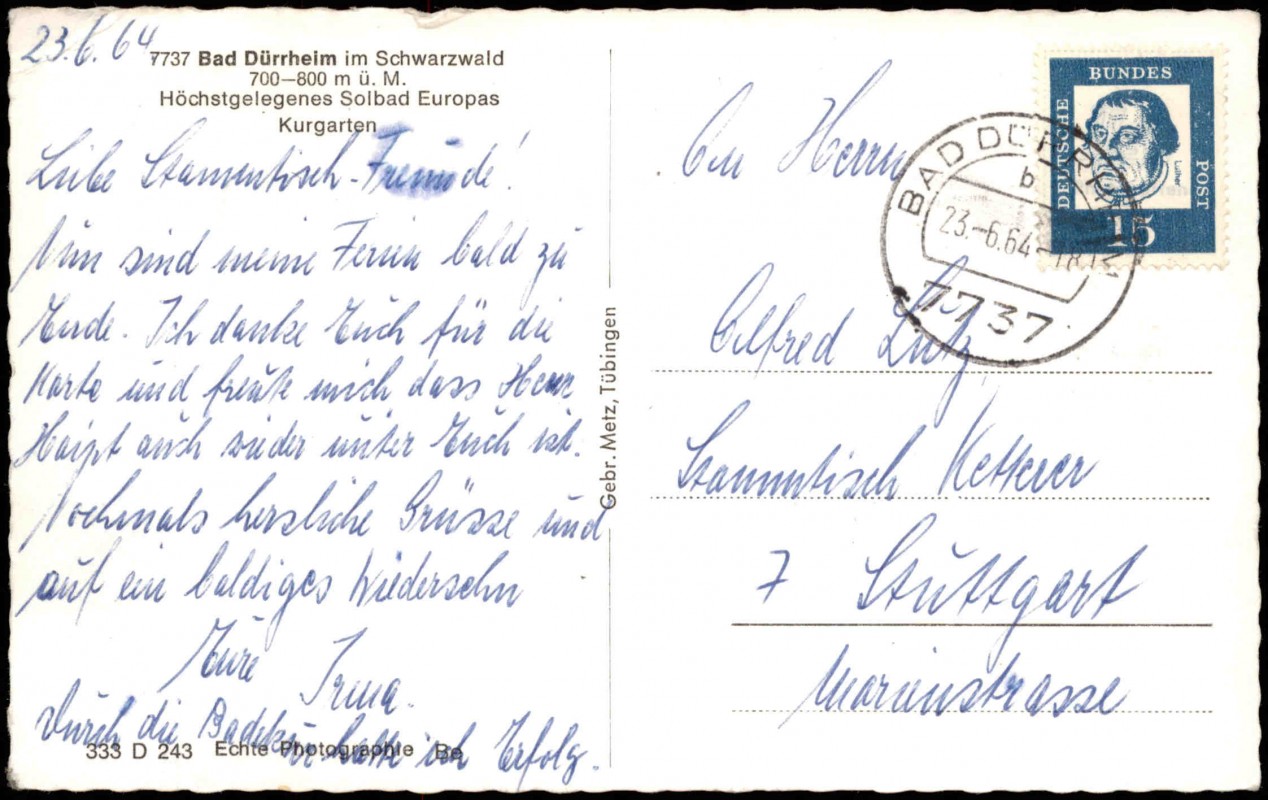 23.6.64
7737 Bad Dürrheim im Schwarzwald
700—800 m ü. M.
Höchstgelegenes Solbad Europas
Kurgarten
Liebe Stammtisch-Freunde!
Nun sind meine Ferien bald zu
Ende. Ich danke Euch für die
Karte und freute mich dass Herr
Haipt auch wieder unter Euch ist.
Nochmals herzliche Grüsse und
auf ein baldiges Wiedersehn
Eure
Irma.
Durch die Badekur hatte ich Erfolg.
333 D 243 Echte Photographie Be
Gebr. Metz, Tübingen
An Herrn
Alfred Lutz
Stammtisch Ketterer
7 Stuttgart
Marienstrasse
DEUTSCHE BUNDES POST
Luther
15
BAD DÜRRHEIM
b
23.-6.64-18
7737